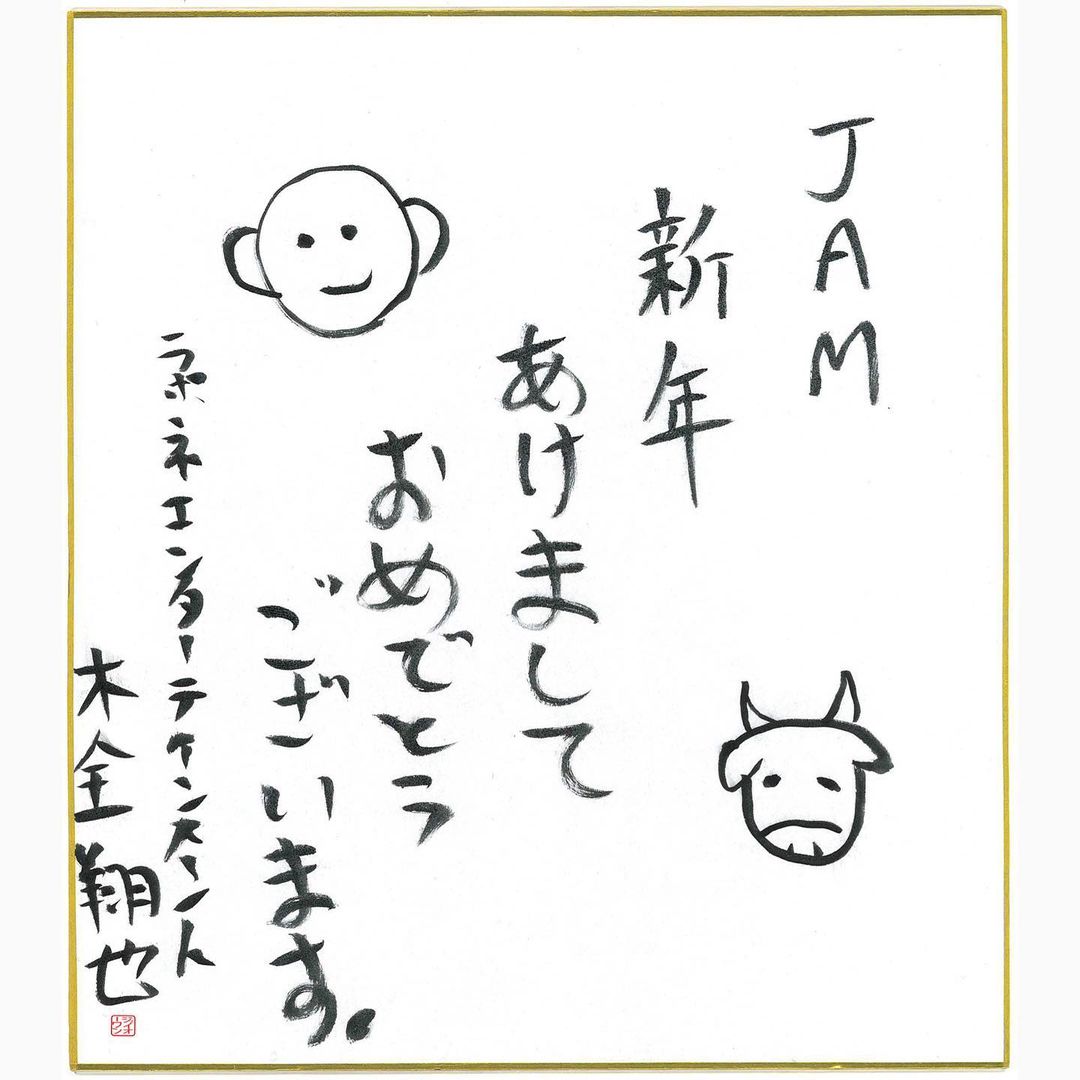 JAM
新年
あけまして
おめでとう
ございます。
ラポネエンターテインメント
木全翔也